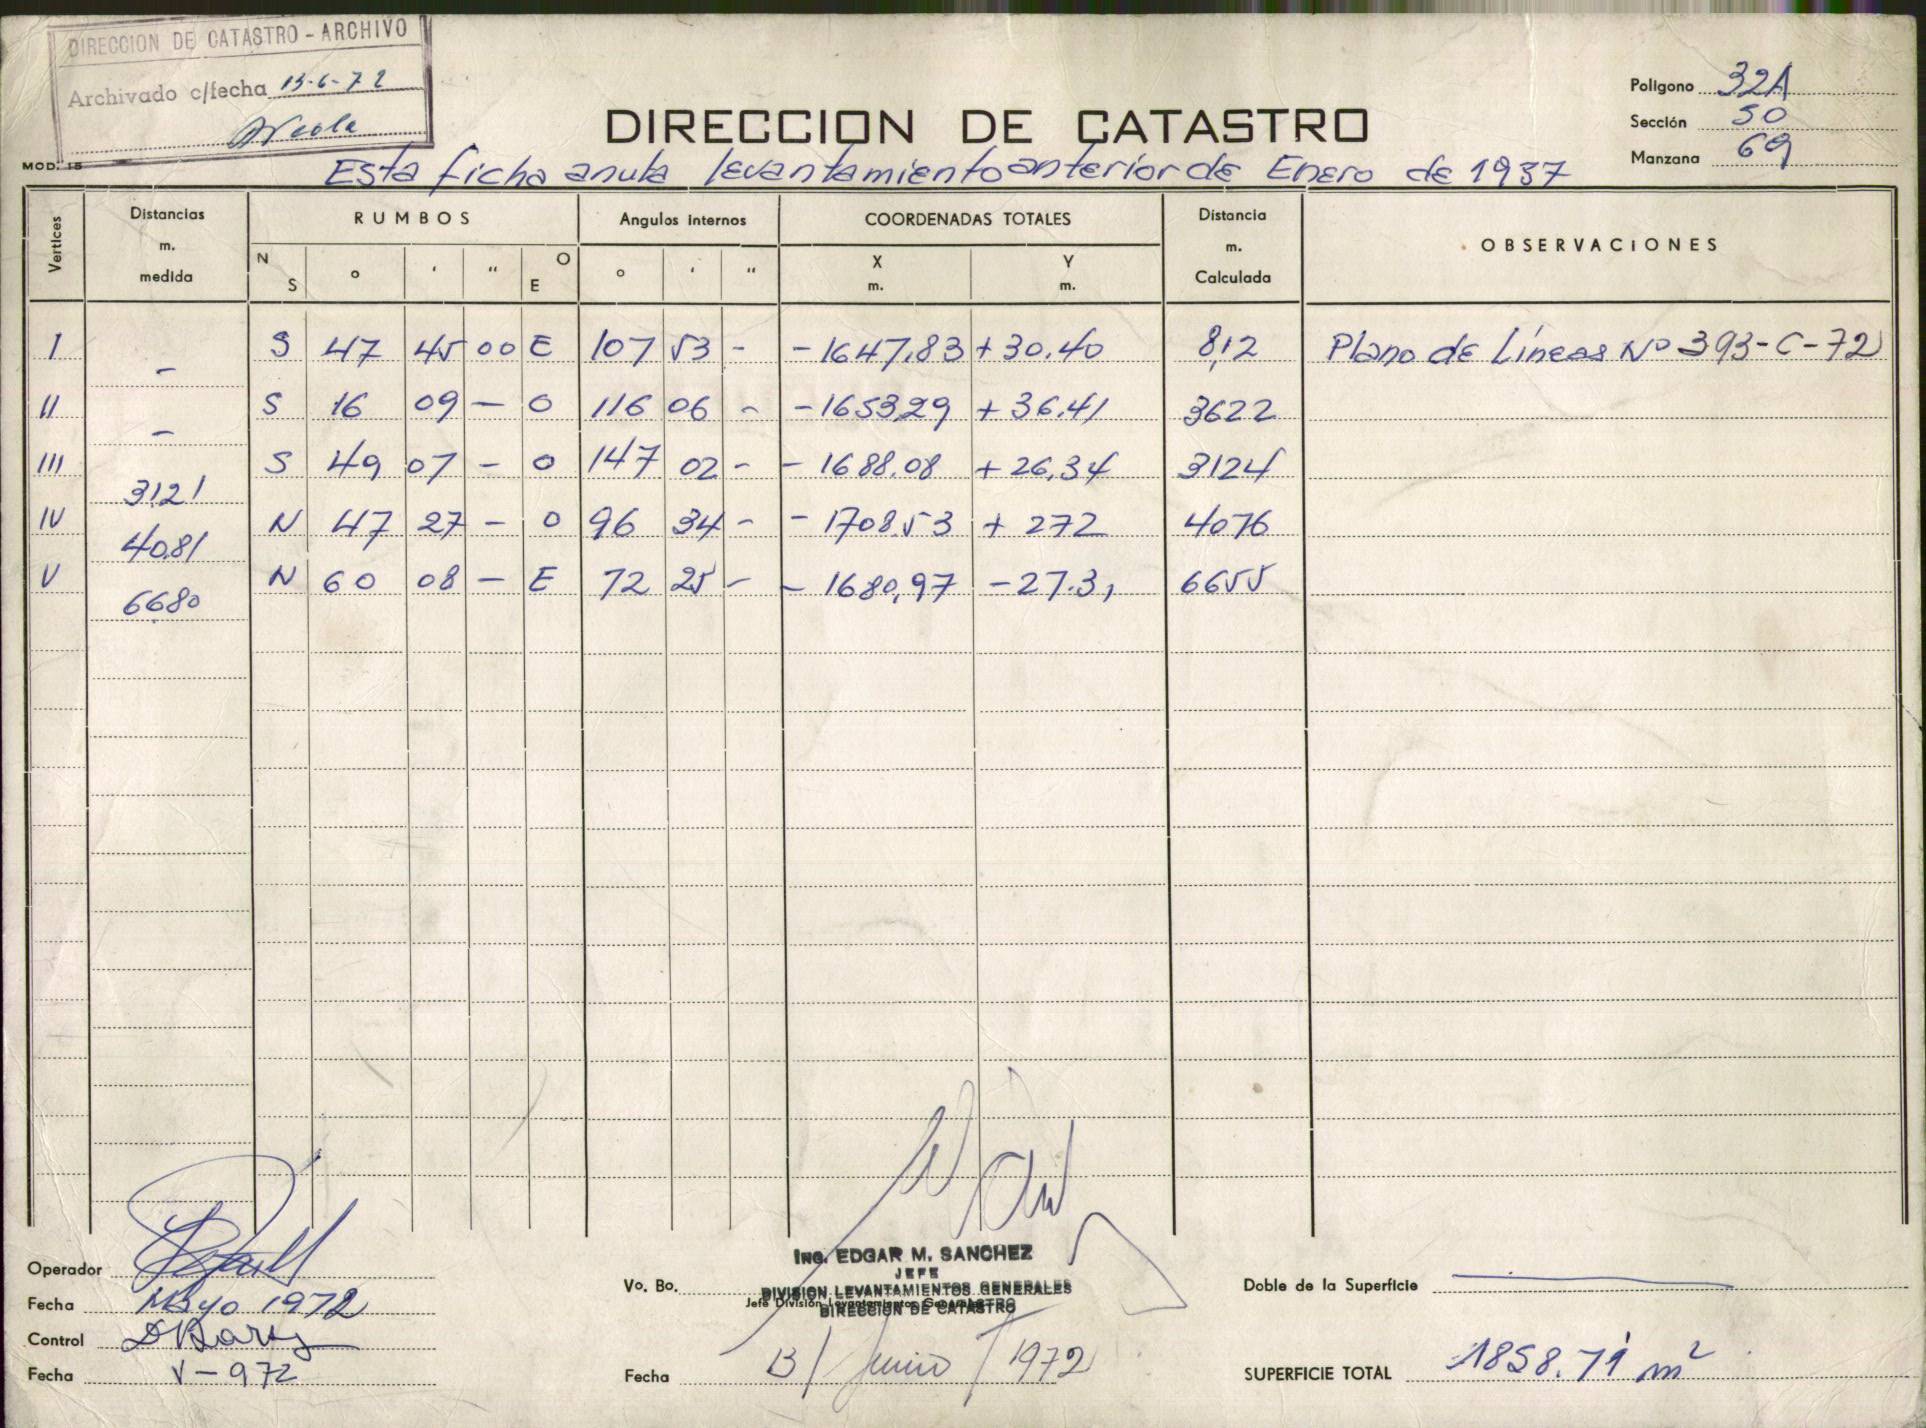 DIRECCION DE CATASTRO - ARCHIVO
Archivado c/fecha 13-6-72
MOD. 15
DIRECCION DE CATASTRO
Polígono 32A
Sección 50
Manzana 69
Esta ficha anula levantamiento anterior de Enero de 1937
Vertices Distancias m. medida RUMBOS Angulos internos COORDENADAS TOTALES Distancia m. Calculada OBSERVACIONES
N S ° ' " O E ° ' " X m. Y m.
I - S 47 45 00 E 107 53 - -1647,83 +30.40 8,12 Plano de Líneas Nº 393-C-72
II - S 16 09 - O 116 06 - -1653,29 +36.41 3622
III 3121 S 49 07 - O 147 02 - -1688.08 +26,34 3124
IV 4081 N 47 27 - O 96 34 - -1708.53 +272 4076
V 6680 N 60 08 - E 72 25 - -1680,97 -27.31 6655
Operador
Fecha Mayo 1972
Control
Fecha V-972
Vo. Bo.
Ing. EDGAR M. SANCHEZ
JEFE
DIVISION LEVANTAMIENTOS GENERALES
Jefe División Levantamientos Generales
DIRECCION DE CATASTRO
Fecha 13/Junio/1972
Doble de la Superficie
SUPERFICIE TOTAL 1858.71 m²